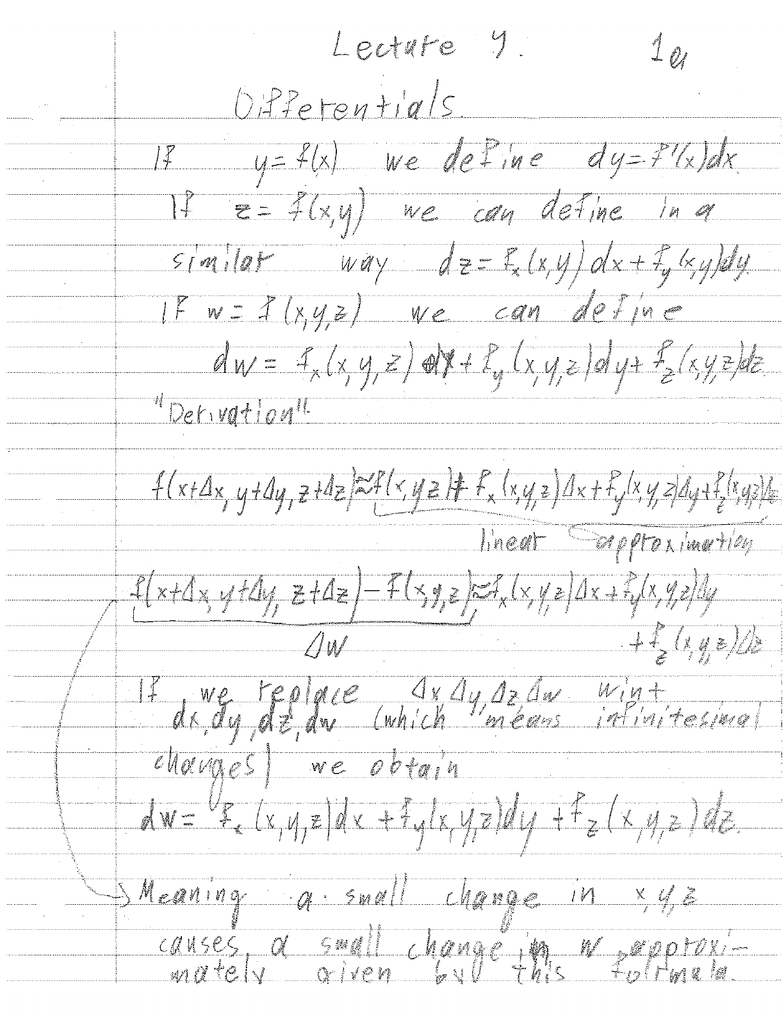 Lecture 9. 1a
Differentials.
If y = f(x) we define dy = f'(x)dx.
If z = f(x,y) we can define in a
similar way dz = f_x(x,y)dx + f_y(x,y)dy.
If w = f(x,y,z) we can define
dw = f_x(x,y,z) dx + f_y(x,y,z)dy + f_z(x,y,z)dz.
"Derivation".
f(x+Δx, y+Δy, z+Δz) ≈ f(x,y,z) + f_x(x,y,z)Δx + f_y(x,y,z)Δy + f_z(x,y,z)Δz
linear approximation
f(x+Δx, y+Δy, z+Δz) - f(x,y,z) ≈ f_x(x,y,z)Δx + f_y(x,y,z)Δy
Δw + f_z(x,y,z)Δz
If we replace Δx, Δy, Δz, Δw
dx, dy, dz, dw (which means infinitesimal
changes) we obtain
dw = f_x(x,y,z)dx + f_y(x,y,z)dy + f_z(x,y,z)dz.
Meaning a small change in x,y,z
causes a small change in w approxi-
mately given by this formula.